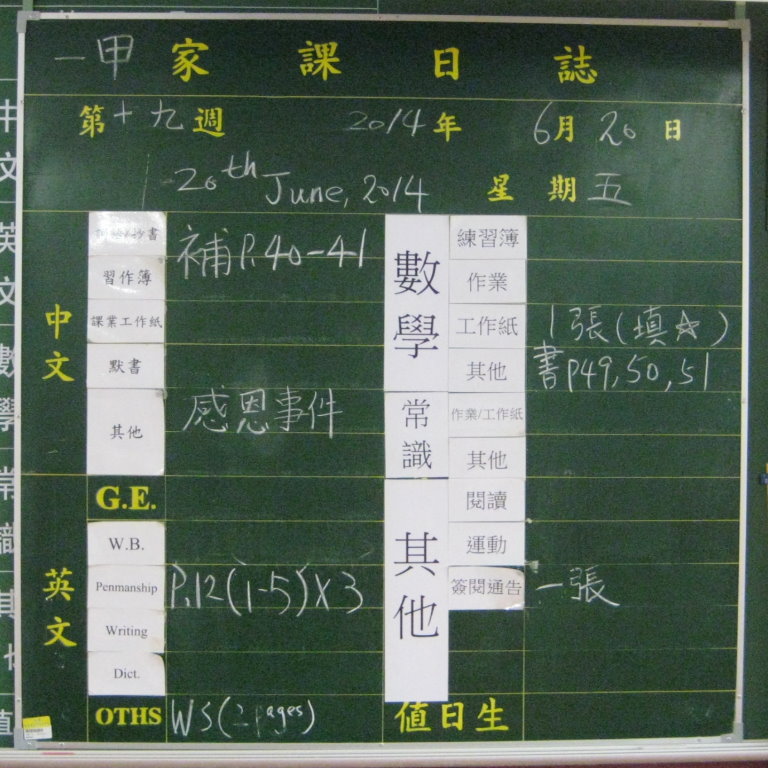 一甲 家課日誌
第十九週 2014年 6月20日
20th June, 2014 星期五
中文
抄書 補P.40-41
習作簿
課業工作紙
默書
其他 感恩事件
英文
G.E.
W.B.
Penmanship P.12(1-5)X3
Writing
Dict.
OTHS WS(2pages)
數學
練習簿
作業
工作紙 1張(填☆)
其他 書P49,50,51
常識
作業/工作紙
其他
其他
閱讀
運動
簽閱通告 一張
值日生
中
文
英
文
數
學
常
識
其
值